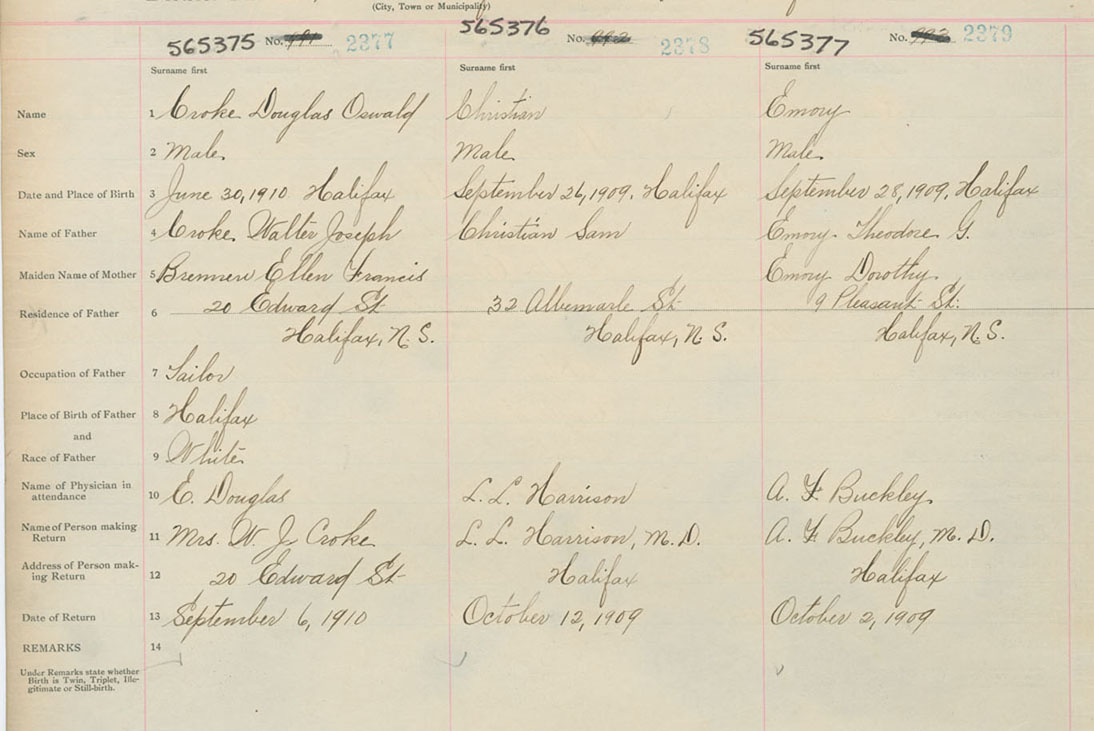 (City, Town or Municipality)
565375 No. 2377 565376 No. 2378 565377 No. 2379
Surname first Surname first Surname first
Name 1 Croke Douglas Oswald Christian Emory
Sex 2 Male. Male. Male.
Date and Place of Birth 3 June 30, 1910 Halifax September 26, 1909. Halifax September 28, 1909. Halifax
Name of Father 4 Croke. Walter Joseph Christian Sam Emory. Theodore G.
Maiden Name of Mother 5 Brennen Ellen Francis Emory Dorothy.
20 Edward St 32 Albemarle St 9 Pleasant St.
Residence of Father 6
Halifax, N.S. Halifax, N.S. Halifax, N.S.
Occupation of Father 7 Sailor
Place of Birth of Father 8 Halifax
and
Race of Father 9 White
Name of Physician in
attendance 10 E. Douglas L. L. Harrison A. F. Buckley.
Name of Person making
Return 11 Mrs. W. J. Croke L. L. Harrison, M.D. A. F. Buckley, M.D.
Address of Person mak-
ing Return 12 20 Edward St Halifax Halifax
Date of Return 13 September 6, 1910 October 12, 1909 October 2, 1909
REMARKS 14
Under Remarks state whether
Birth is Twin, Triplet, Ille-
gitimate or Still-birth.